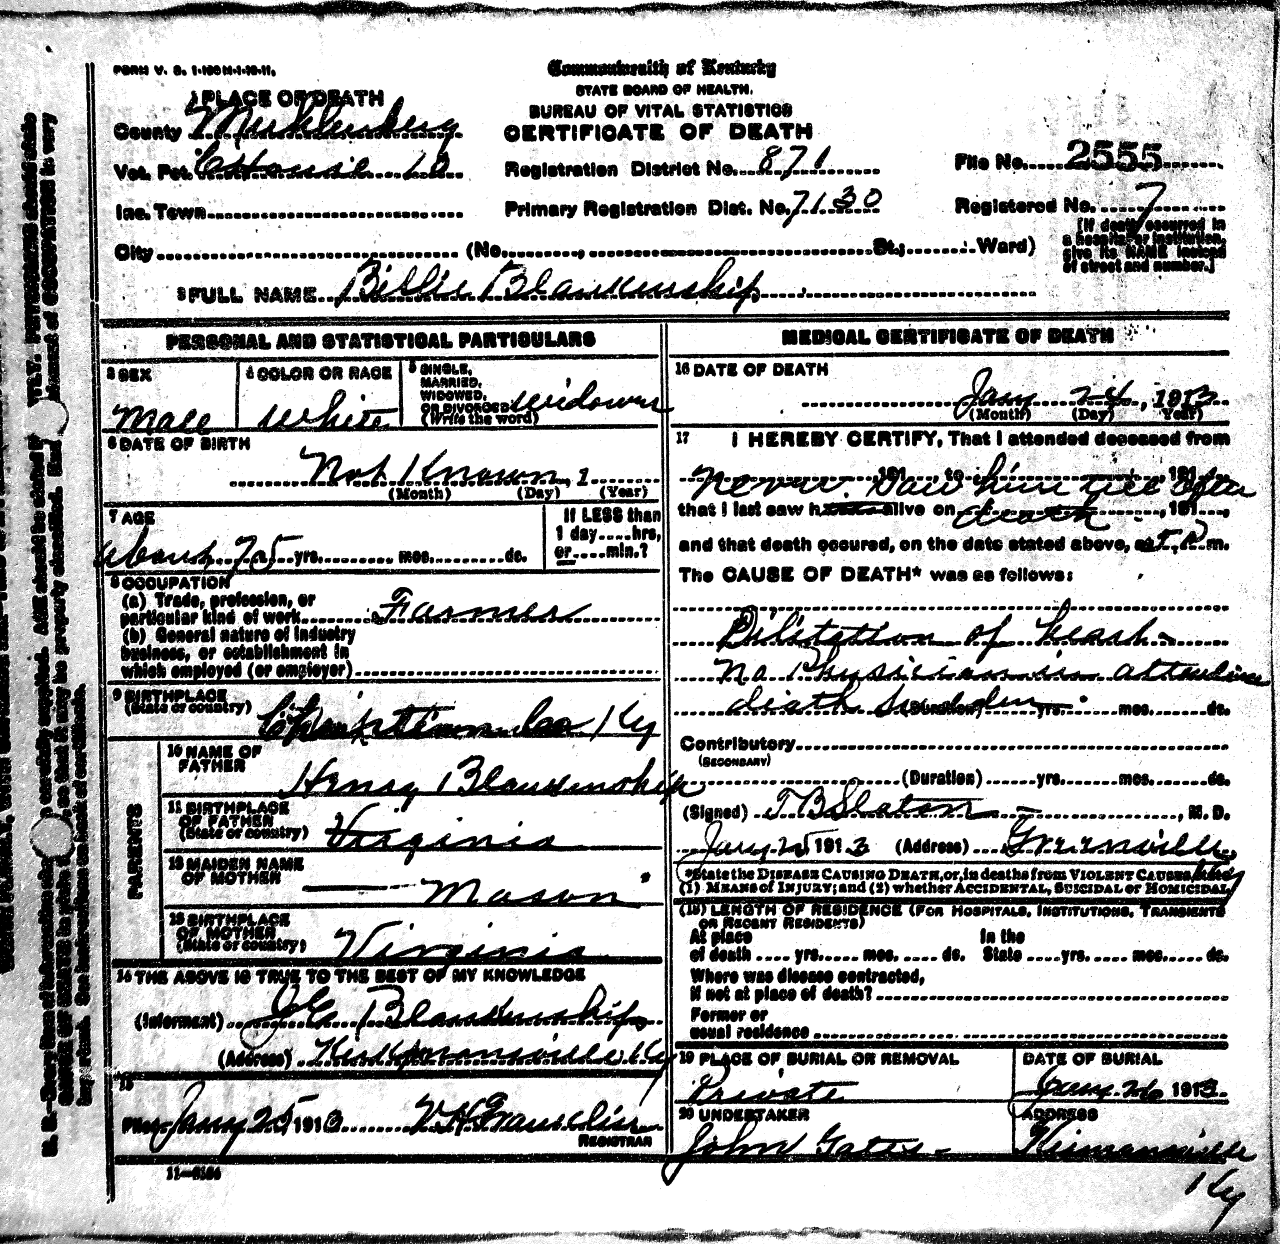 FORM V. S. 1-150M-1-10-11.
Commonwealth of Kentucky
STATE BOARD OF HEALTH.
BUREAU OF VITAL STATISTICS
CERTIFICATE OF DEATH
1 PLACE OF DEATH
County Muhlenberg
Vot. Pct. C House 10
Registration District No. 871
File No. 2555
Inc. Town
Primary Registration Dist. No. 7130
Registered No. 7
City (No. , St.; Ward)
[If death occurred in a hospital or institution, give its NAME instead of street and number.]
2 FULL NAME Billie Blankenship
PERSONAL AND STATISTICAL PARTICULARS
3 SEX Male
4 COLOR OR RACE White
5 SINGLE, MARRIED, WIDOWED, OR DIVORCED (Write the word) widower
6 DATE OF BIRTH
Not Known, 1
(Month) (Day) (Year)
7 AGE
about 75 yrs. mos. ds.
If LESS than 1 day....hrs. or....min.?
8 OCCUPATION
(a) Trade, profession, or particular kind of work Farmer
(b) General nature of industry business, or establishment in which employed (or employer)
9 BIRTHPLACE (State or country) Christian Co Ky
PARENTS
10 NAME OF FATHER Henry Blankenship
11 BIRTHPLACE OF FATHER (State or country) Virginia
12 MAIDEN NAME OF MOTHER Mason
13 BIRTHPLACE OF MOTHER (State or country) Virginia
14 THE ABOVE IS TRUE TO THE BEST OF MY KNOWLEDGE
(Informant) Blankenship
(Address) Ky
15
Filed Jany 25 1913
REGISTRAR
11—5164
MEDICAL CERTIFICATE OF DEATH
16 DATE OF DEATH
Jany 24, 1913
(Month) (Day) Year)
17 I HEREBY CERTIFY, That I attended deceased from
never. Saw him till after
191 , to , 191
that I last saw h alive on death , 191 ,
and that death occured, on the date stated above, at 5 P. m.
The CAUSE OF DEATH* was as follows:
Dilatation of heart
no Physician in attendance
death sudden
(Duration) yrs. mos. ds.
Contributory
(SECONDARY)
(Duration) yrs. mos. ds.
(Signed) T B Slaton, M. D.
Jany 25 1913 (Address) Greenville Ky
*State the DISEASE CAUSING DEATH, or, in deaths from VIOLENT CAUSES,
(1) MEANS of INJURY; and (2) whether ACCIDENTAL, SUICIDAL or HOMICIDAL
(18) LENGTH OF RESIDENCE (FOR HOSPITALS, INSTITUTIONS, TRANSIENTS OR RECENT RESIDENTS)
At place of death yrs. mos. ds. In the State yrs. mos. ds.
Where was disease contracted,
If not at place of death?
Former or
usual residence
19 PLACE OF BURIAL OR REMOVAL Private
DATE OF BURIAL Jany 26 1913
20 UNDERTAKER John Gates
ADDRESS
Ky